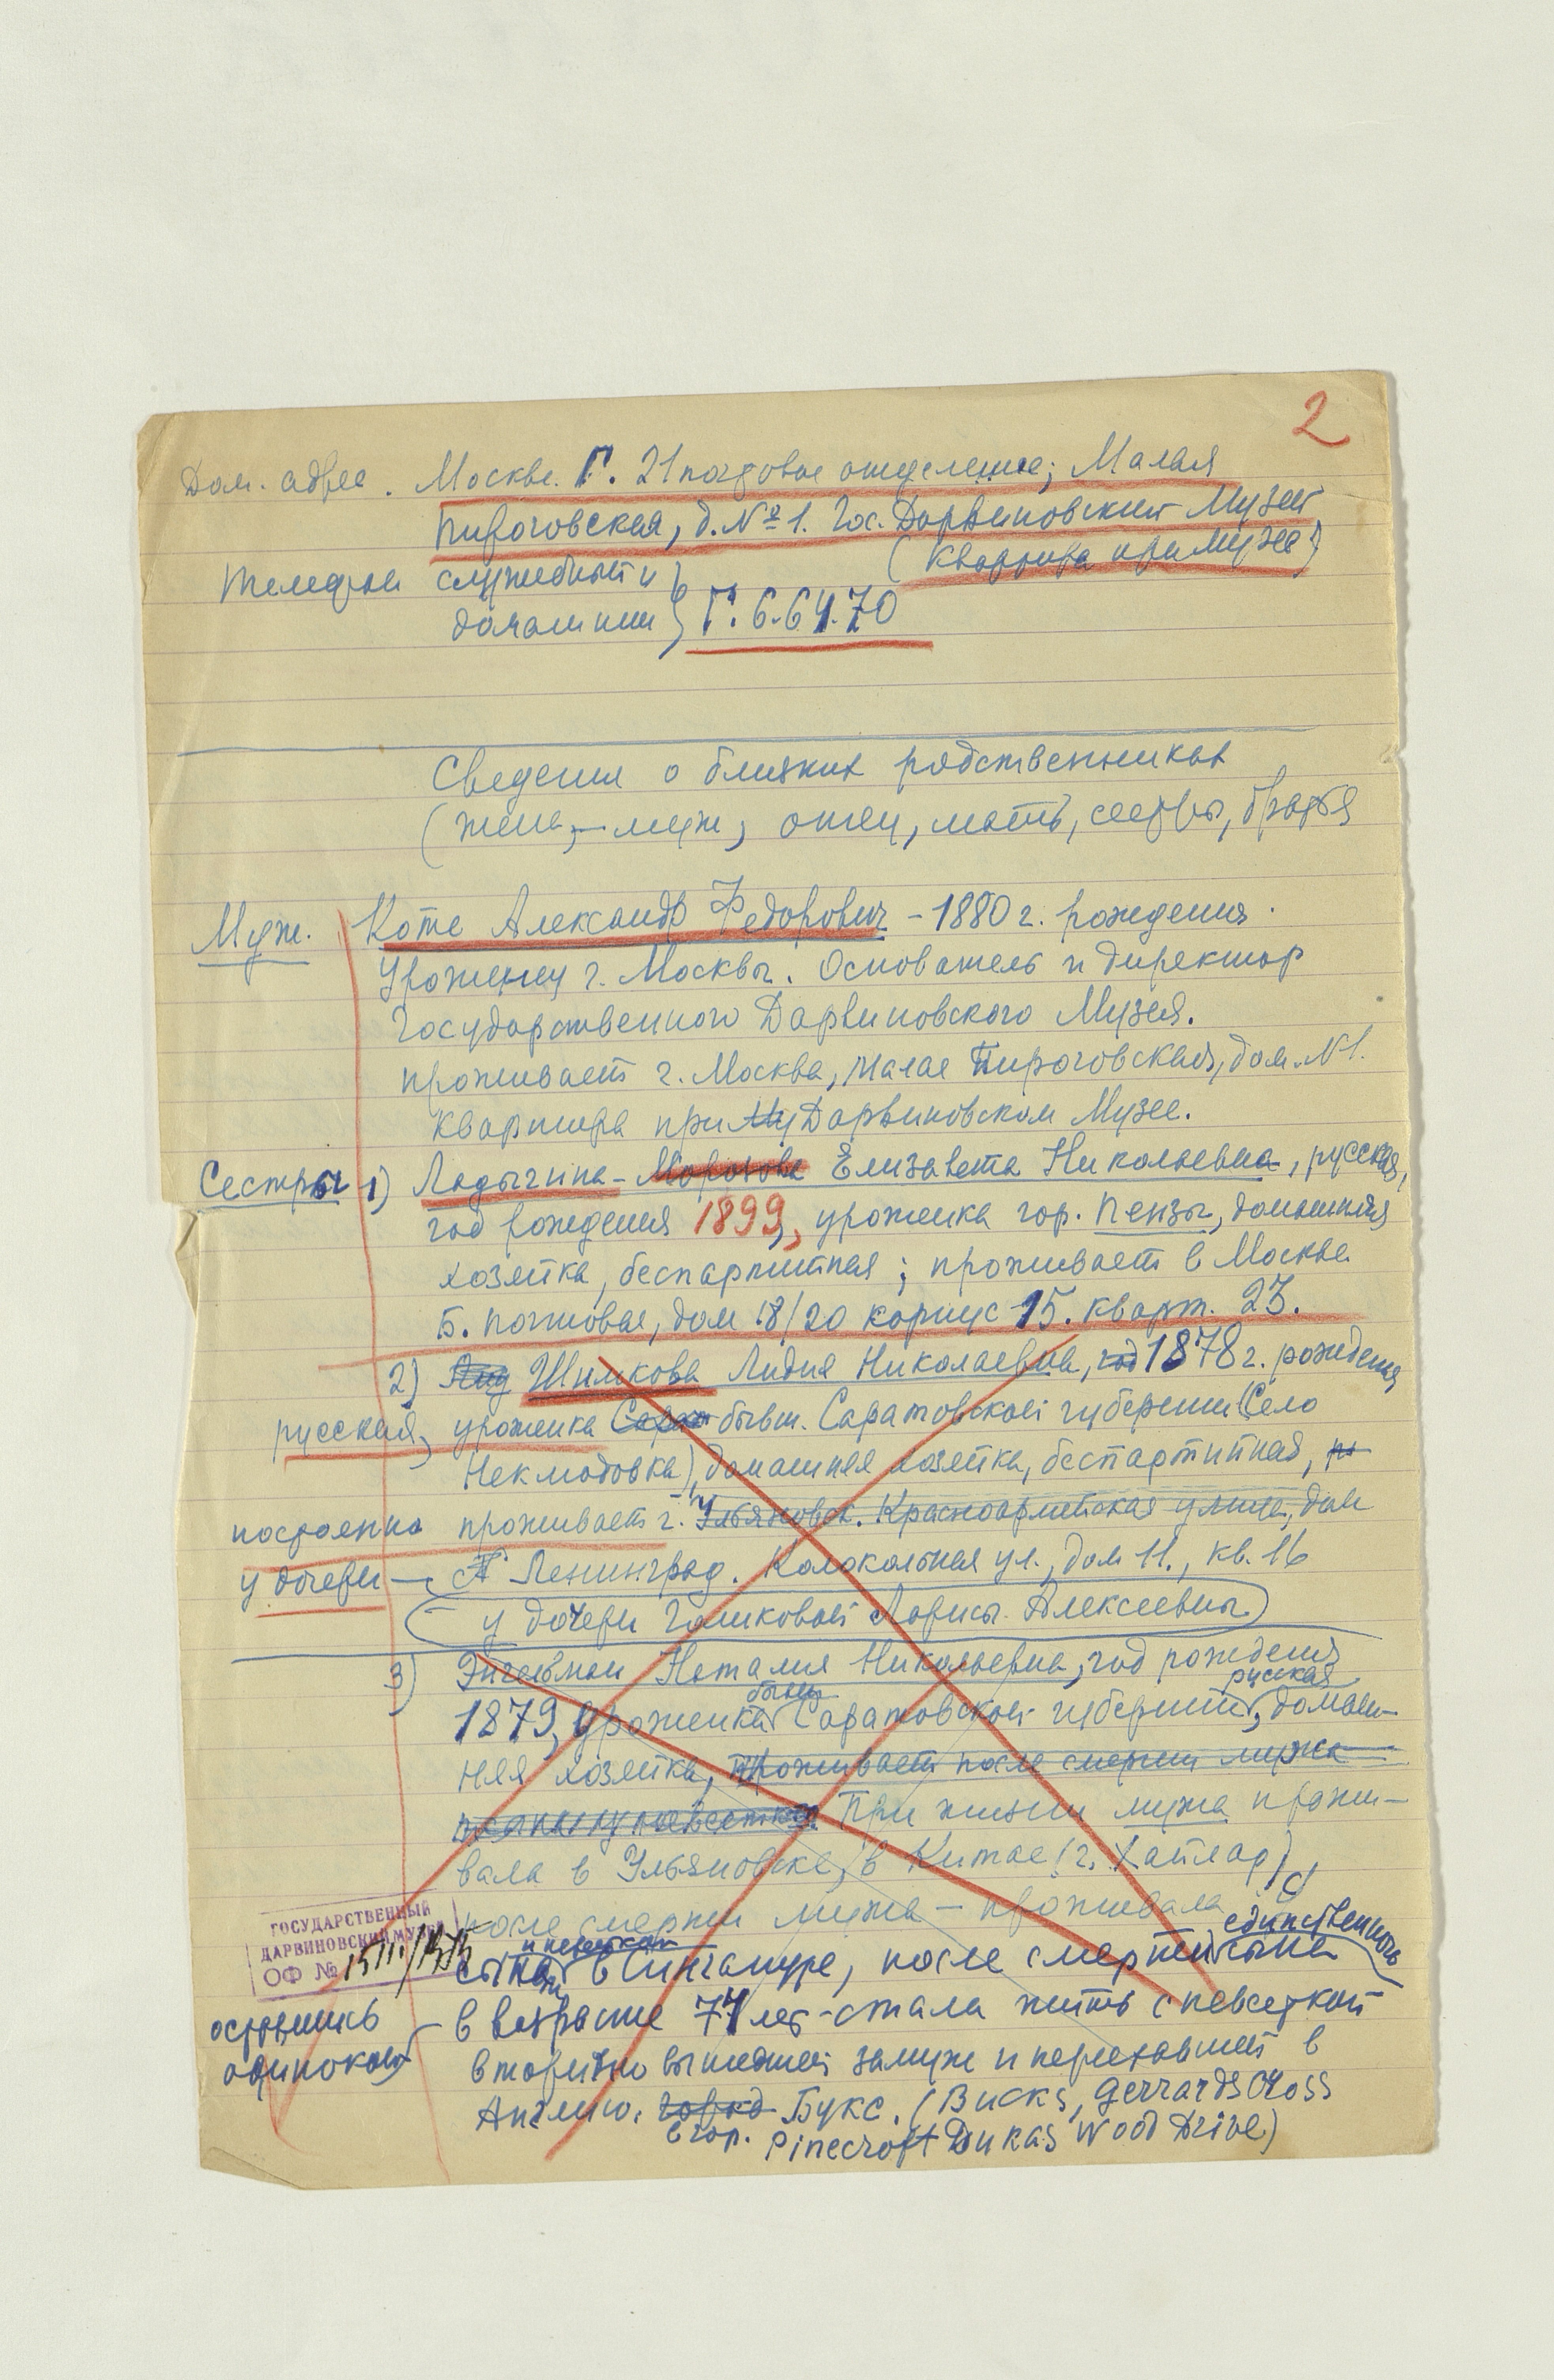 2
Дом. адрес. Москва. Г. 21 почтовое отделение; Малая
Пироговская, д. № 1. Гос. Дарвиновский Музей
(Квартира при Музее)
Телефон служебный и
домашний } Г. 6.64.70
Сведения о близких родственниках
(жена, – муж, отец, мать, сестры, братья
Муж. Котс Александр Федорович – 1880 г. рождения.
Уроженец г. Москвы. Основатель и директор
Государственного Дарвиновского Музея.
проживает г. Москва, Малая Пироговская, дом. N 1.
Квартира при Му Дарвиновском Музее.
Сестры 1) Ладыгина – Морозова Елизавета Николаевна, русская,
год рождения 1899, уроженка гор. Пензы, домашняя
хозяйка, беспартийная; проживает в Москве
Б. Почтовая, дом 18/20 корпус 15. кварт. 23.
2) Лид Шимкова Лидия Николаевна, год 1878 г. рождения
русская, уроженка Сарат бывш. Саратовской губернии (Село
Некмодовка), домашняя хозяйка, беспартийная,
постоянно проживает г. Ульяновск. Красноармейская улица, дом
у дочери – Ленинград. Колокольная ул., дом 11., кв. 16
у дочери Гашковой Ларисы Алексеевны.
3) Энгельман Наталия Николаевна, год рождения
бывш. русская
1879, уроженка Саратовской губернии, домаш-
няя хозяйка, проживает после смерти мужа
При жизни мужа прожи-
вала в Ульяновске, в Китае (г. Хайлар),
после смерти мужа – проживала с
ГОСУДАРСТВЕННЫЙ
ДАРВИНОВСКИЙ МУЗЕЙ
ОФ №
и невесткой единственного
сыном в Сингапуре, после смерти сына
оставшись в возрасте 77 лет – стала жить с невесткой
одинокой вторично вышедшей замуж и переехавшей в
Англию. город Букс. (Bucks, Gerrards Cross
в гор. Pinecroft Dukas Wood Drive)